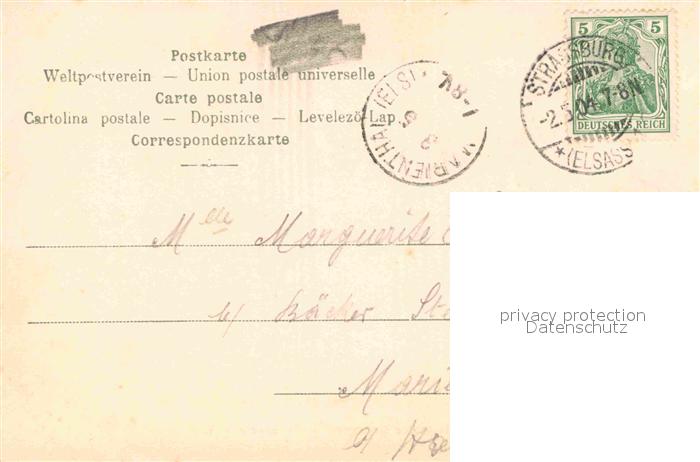 Postkarte
Weltpostverein — Union postale universelle
Carte postale
Cartolina postale — Dopisnice — Levelező-Lap.
Correspondenzkarte
MARIENTHAL (ELS)
5
5
DEUTSCHES REICH
STRASSBURG
2.5.04.7-8N.
*(ELSASS
Mde Marguerite
b/ Bäcker
Marie
privacy protection
Datenschutz